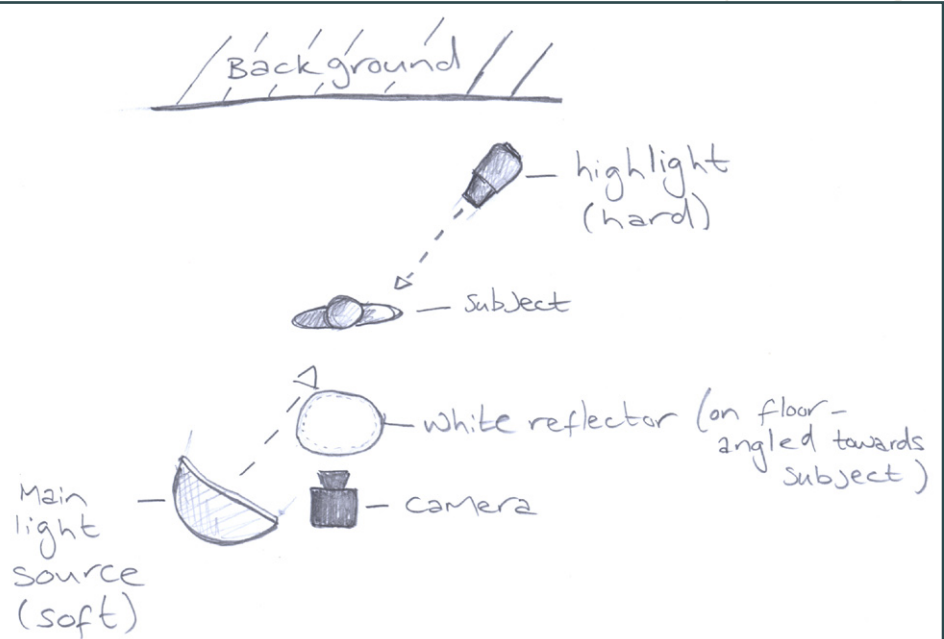 Background
highlight
(hard)
subject
white reflector (on floor-
angled towards
subject)
camera
Main
light
source
(soft)